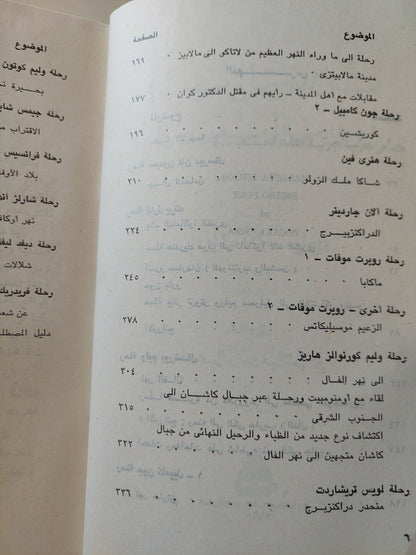 الموضوع الصفحة
رحلة الى ما وراء النهر العظيم من لاتاكو الى مالابيز
مدينة مالابيتزى ١٦٩
مقابلات مع اهل المدينة – رأيهم فى مقتل الدكتور كوان ١٧٧
رحلة جون كامبيل – ٢
كوريشسين ١٩٦
رحلة هنرى فين
شاكا ملك الزولو ٢١٠
رحلة الان جاردينر
الدراكنزبيرج ٢٢٤
رحلة روبرت موفات – ١
ماكابا ٢٤٥
رحلة اخرى – روبرت موفات – ٢
الزعيم موسيليكاتس ٢٧٨
رحلة وليم كورنوالز هاريز
الى نهر الفال ٣٠٤
لقاء مع اومنومبيت ورحلة عبر جبال كاشان الى
الجنوب الشرقى ٣١٥
اكتشاف نوع جديد من الظباء والرحيل النهائى من جبال
كاشان متجهين الى نهر الفال ٣٢٢
رحلة لويس تريشاردت
منحدر دراكنزبرج ٣٣٦
٦
الموضوع
رحلة وليم كوتون
بحيرة
رحلة جيمس
الاقتراب
رحلة فرانسيس
بلاد الاوف
رحلة شارلز
نهر اوكاف
رحلة ديفد ليف
شلالات
رحلة فريدريك
عن شع
دليل المصطل